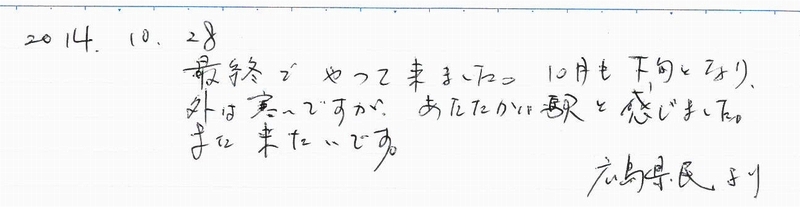 2014. 10. 28
最終でやって来ました。 10月も下旬となり、
外は寒いですが、あたたかい駅と感じました。
また来たいです。
広島県民より